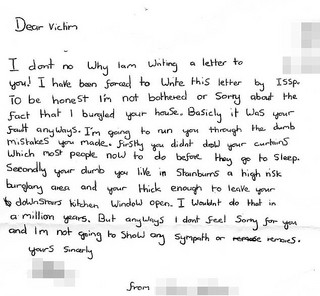 Dear Victim
I dont no Why Iam Writing a letter to
you! I have been forced to Write this letter by ISSP.
To be honest I'm not bothered or Sorry about the
fact that I burgled your house. Basicly it was your
fault anyways. I'm going to run you through the dumb
mistakes you made. Firstly you didnt draw your curtains
which most people now to do before they go to sleep.
Secondly your dumb you live in Stanburs a high risk
burglary area and your thick enough to leave your
downstairs kitchen window open. I wouldnt do that in
a million years. But anyways I dont feel Sorry for you
and Im not going to show any sympath or remorse.
Yours Sincerly
from